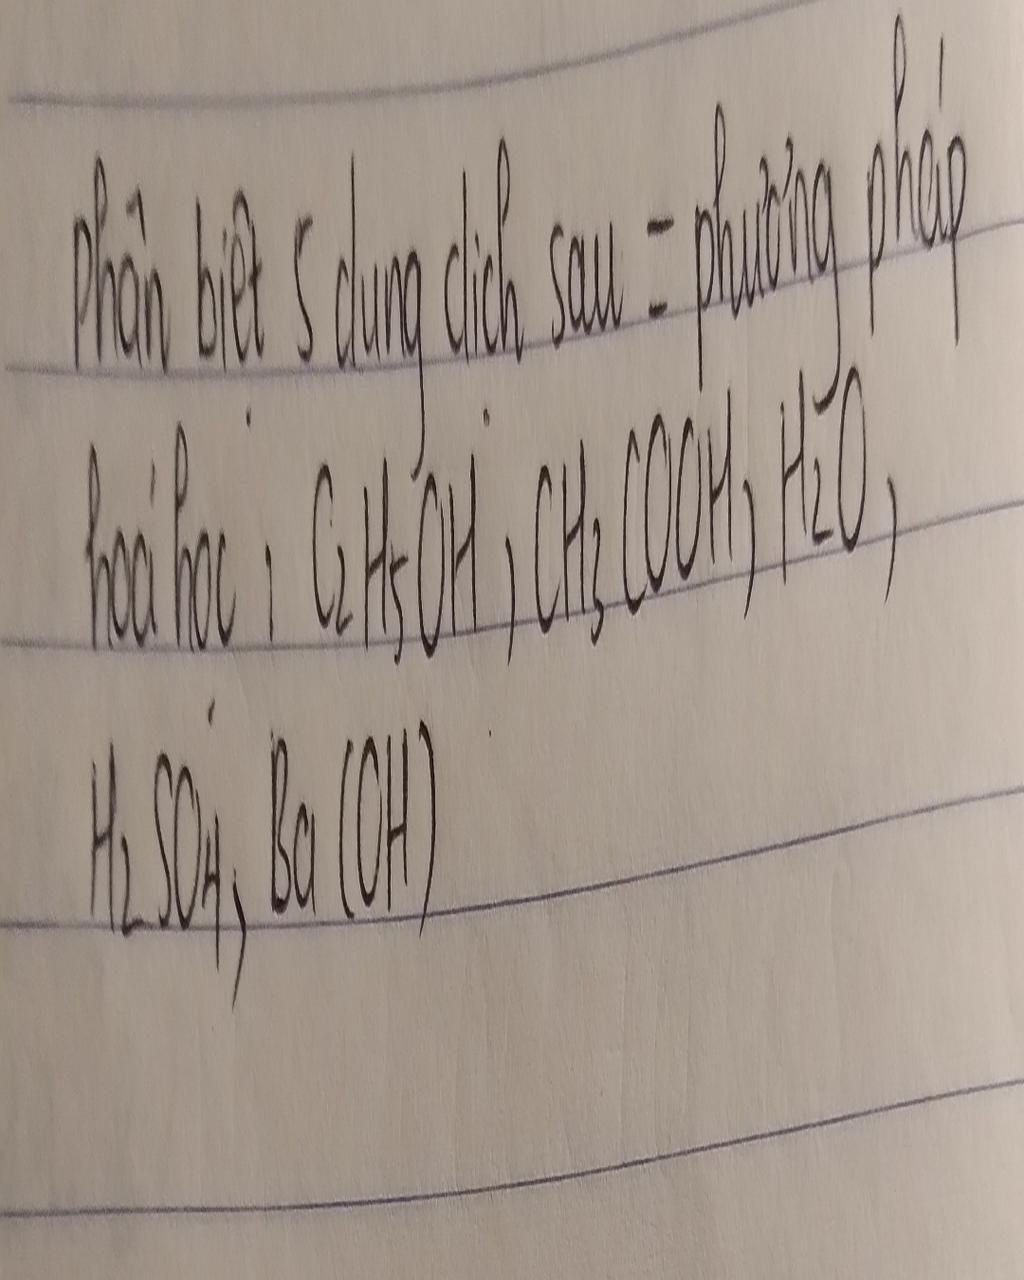 Phân biệt 5 dung dịch sau = phương pháp
hoá học : C2H5OH, CH3COOH, H2O,
H2SO4, Ba(OH)